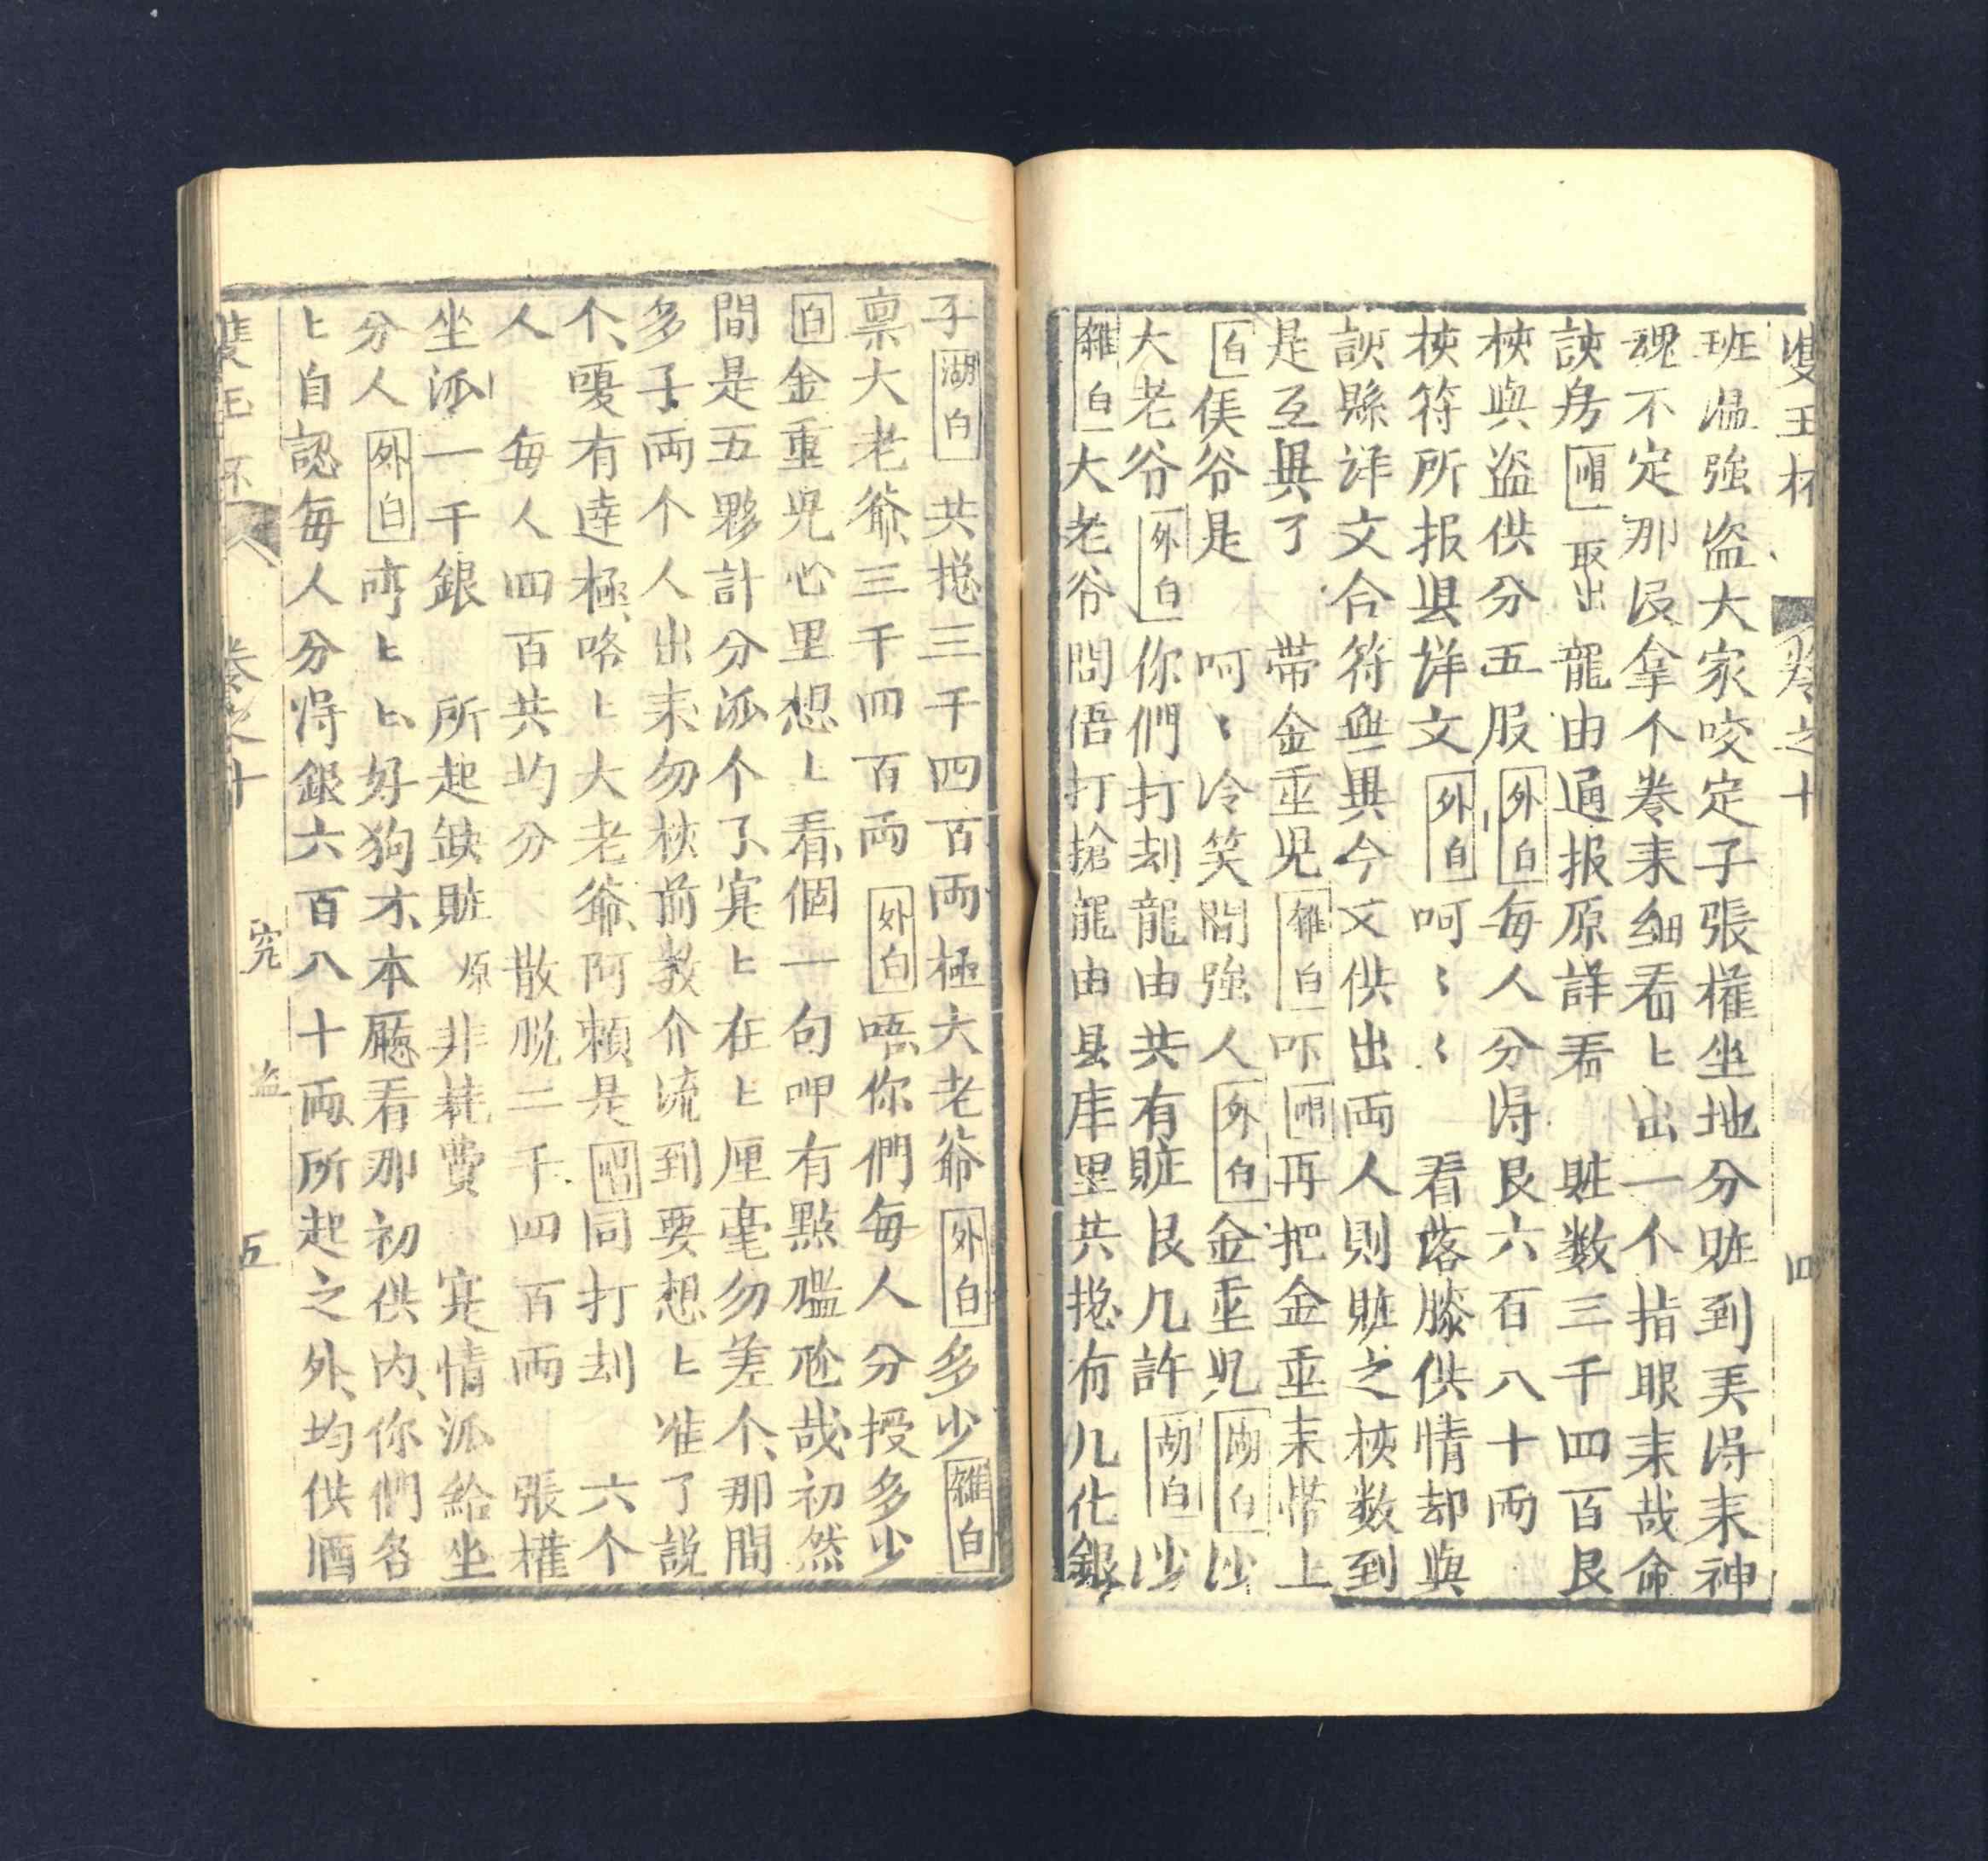 雙玉杯 卷之十 四
班温強盗大家咬定子張權坐地分賍到美淂耒神
魂不定那艮拿个卷耒細看匕出一个指眼耒哉命
諛房唱取出龍由通报原詳看 賍数三千四百艮
梜與盗供分五股外白每人分淂艮六百八十両
梜符所报县详文外白呵〻〻 看落膝供情却與
諛縣详文合符無異今文供出両人則賍之梜数到
是互異了 带金重児雜白吓唱再把金重耒带上
白俟爷是 呵〻冷笑問強人外白金重児湖白沙
大老爷外白你們打刼龍由共有賍艮几許湖白沙
雜白大老爷問俉打搶龍由县库里共摠有几化銀
子湖白 共摠三千四百両極大老爺外白多少雜白
禀大老爺三千四百両 外白唔你們每人分授多少
白金重児心里想匕看個一句呷有點尷尬哉初然
間是五夥計分派个了寔匕在匕厘毫勿差个那間
多子両个人出耒勿梜前教介流到要想匕准了説
个嗄有逹極咯匕大老爺阿賴是唱同打刼 六个
人 每人四百共均分 散脱二千四百両 張權
坐派一千銀 所起缺賍原非耗費 寔情派給坐
分人外白哼匕匕好狗才本廳看那初供内你們各
匕自認每人分淂銀六百八十両所起之外均供酒
雙玉杯 卷之十 究盗 五